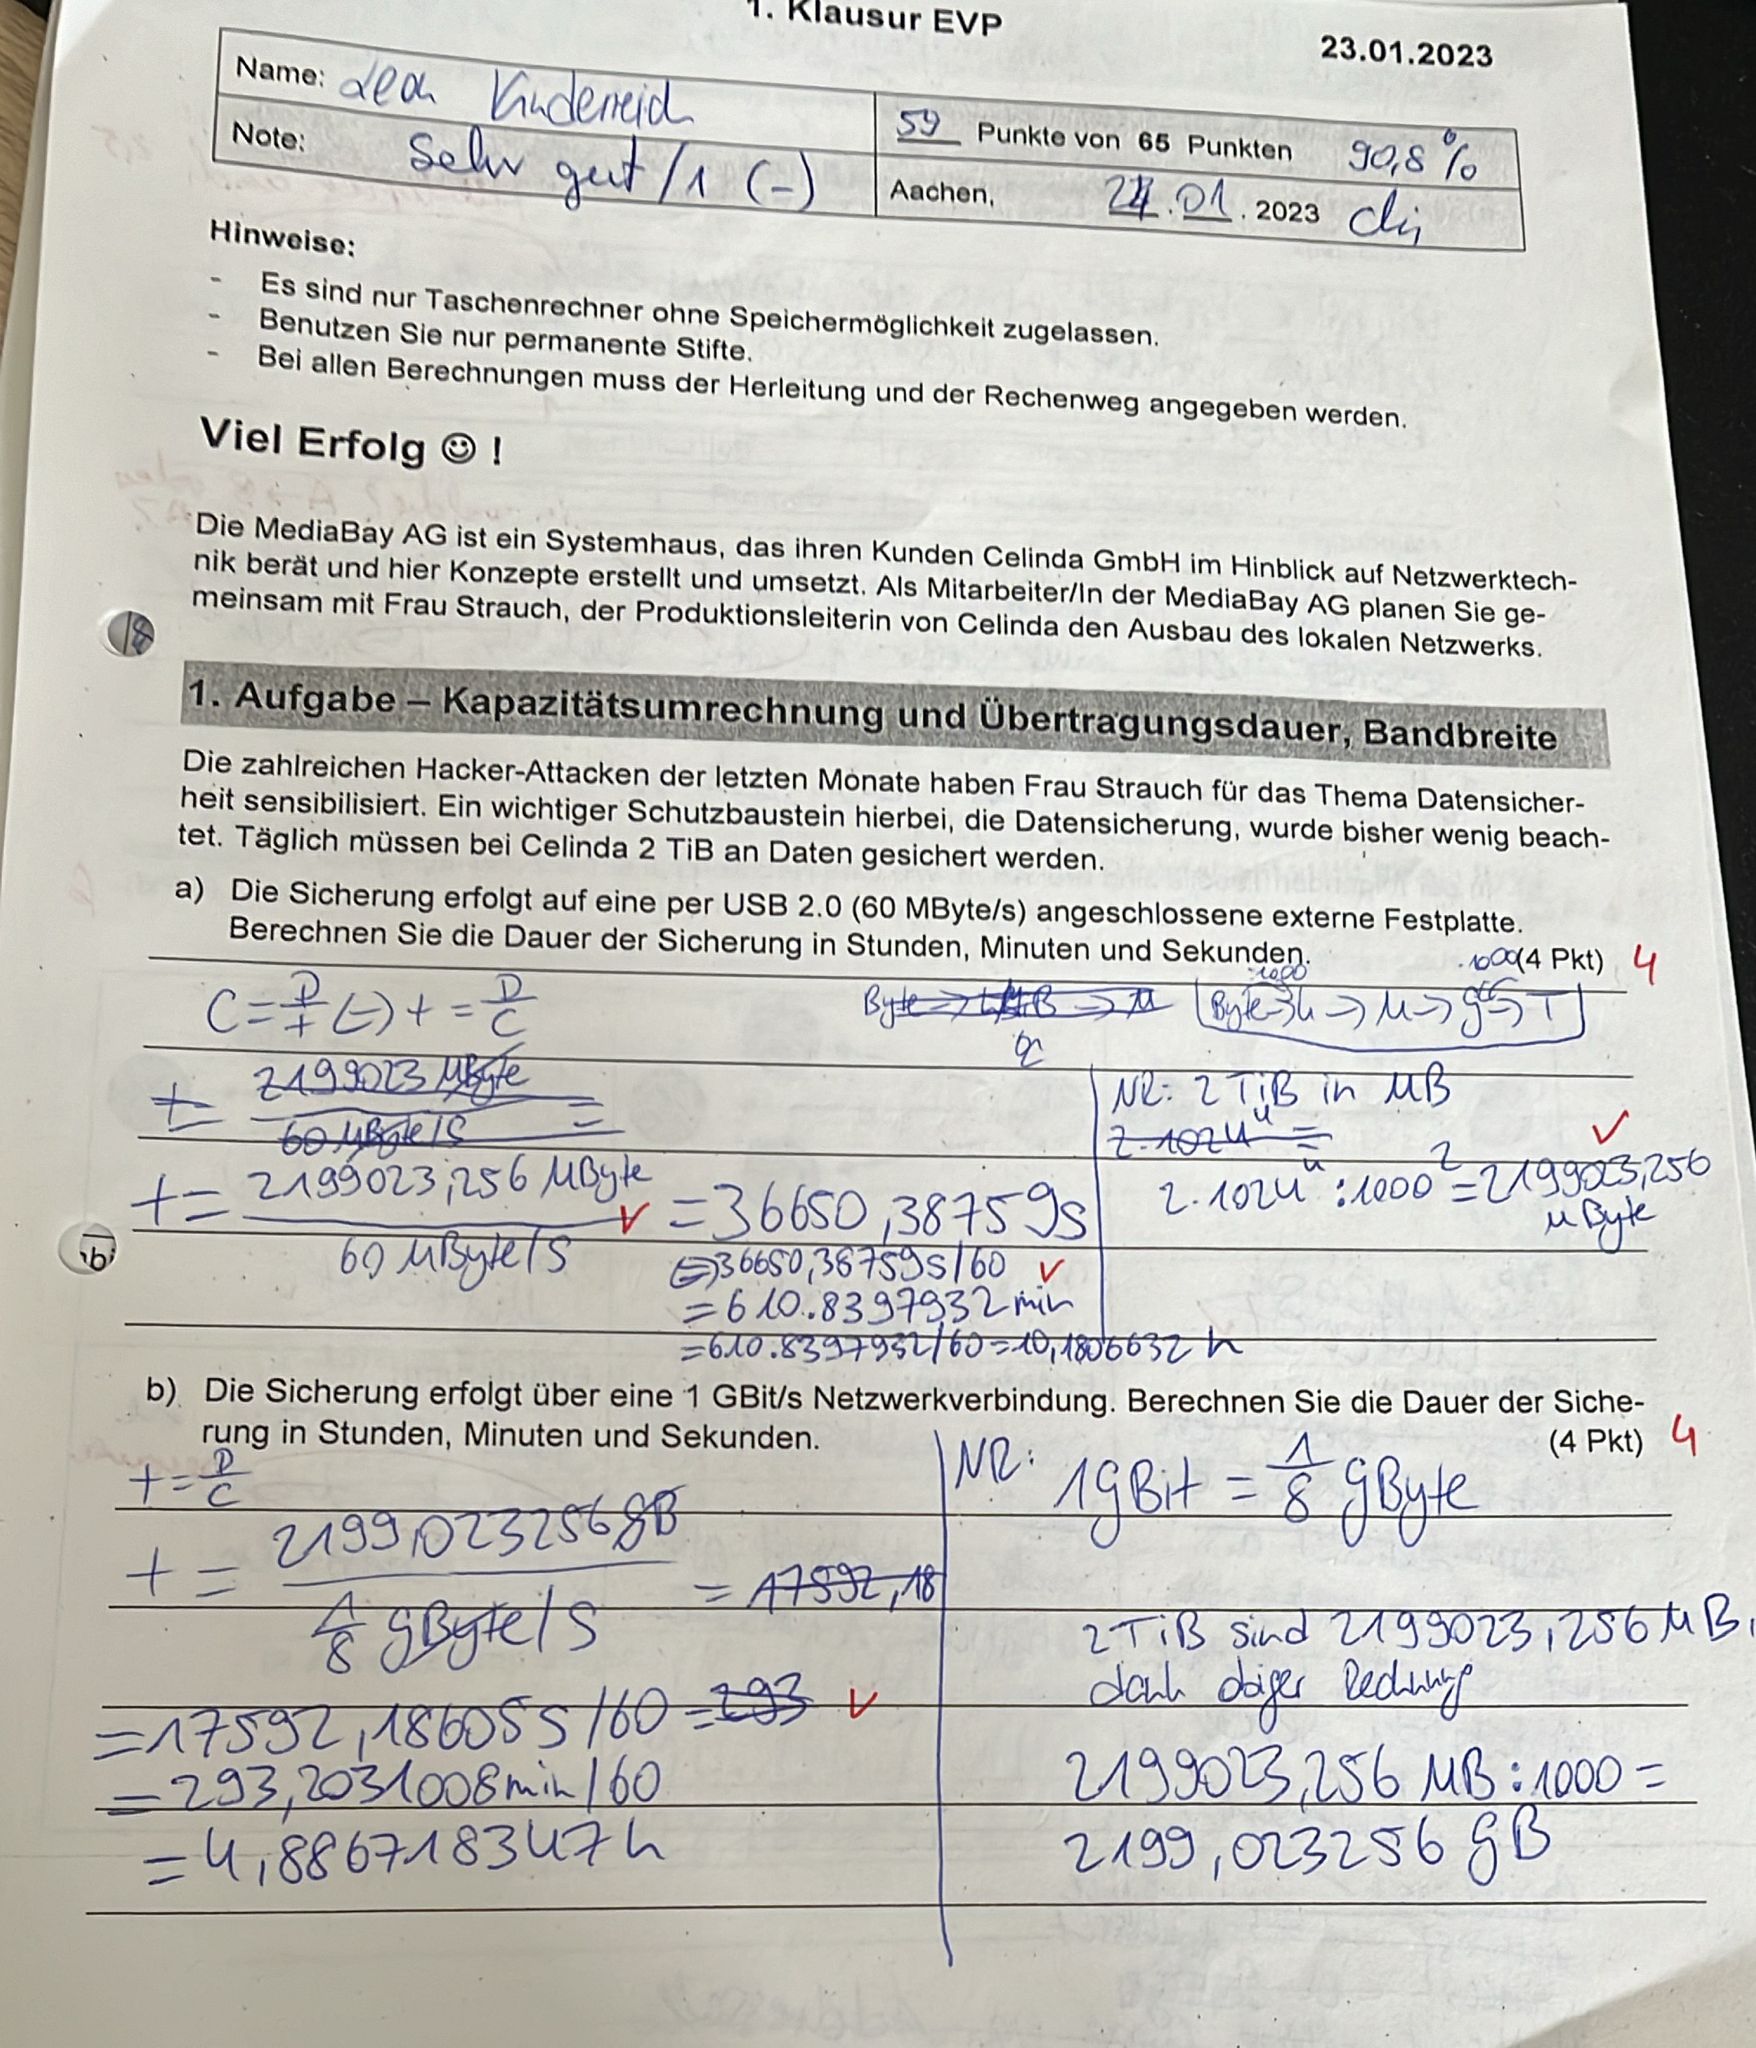 1. Klausur EVP
23.01.2023
Name: Lea Kinderreich
59 Punkte von 65 Punkten 90,8%
Note: Sehr gut / 1 (-)
Aachen, 24.01.2023
Hinweise:
- Es sind nur Taschenrechner ohne Speichermöglichkeit zugelassen.
- Benutzen Sie nur permanente Stifte.
- Bei allen Berechnungen muss der Herleitung und der Rechenweg angegeben werden.
Viel Erfolg ☺ !
Die MediaBay AG ist ein Systemhaus, das ihren Kunden Celinda GmbH im Hinblick auf Netzwerktech-
nik berät und hier Konzepte erstellt und umsetzt. Als Mitarbeiter/In der MediaBay AG planen Sie ge-
meinsam mit Frau Strauch, der Produktionsleiterin von Celinda den Ausbau des lokalen Netzwerks.
1. Aufgabe – Kapazitätsumrechnung und Übertragungsdauer, Bandbreite
Die zahlreichen Hacker-Attacken der letzten Monate haben Frau Strauch für das Thema Datensicher-
heit sensibilisiert. Ein wichtiger Schutzbaustein hierbei, die Datensicherung, wurde bisher wenig beach-
tet. Täglich müssen bei Celinda 2 TiB an Daten gesichert werden.
a) Die Sicherung erfolgt auf eine per USB 2.0 (60 MByte/s) angeschlossene externe Festplatte.
Berechnen Sie die Dauer der Sicherung in Stunden, Minuten und Sekunden. (4 Pkt) 4
C = D/t (=) t = D/C
Byte → k → M → G → T
t = 2199023 MByte / 60 MByte/s =
NR: 2 TiB in MB
2·1024⁴ =
t = 2199023,256 MByte / 60 MByte/s = 36650,38759s
2·1024⁴ : 1000² = 2199023,256 MByte
(=) 36650,38759s/60
= 610.8397932 min
= 610.8397932/60 = 10,1806632 h
b) Die Sicherung erfolgt über eine 1 GBit/s Netzwerkverbindung. Berechnen Sie die Dauer der Siche-
rung in Stunden, Minuten und Sekunden. (4 Pkt) 4
t = D/C
NR: 1GBit = 1/8 GByte
t = 2199,023256 GB / 1/8 GByte/s = 17592,18
2 TiB sind 2199023,256 MB,
dank obiger Rechnung
= 17592,18605s/60 = 293
= 293,2031008 min/60
2199023,256 MB : 1000 =
= 4,886718347 h
2199,023256 GB